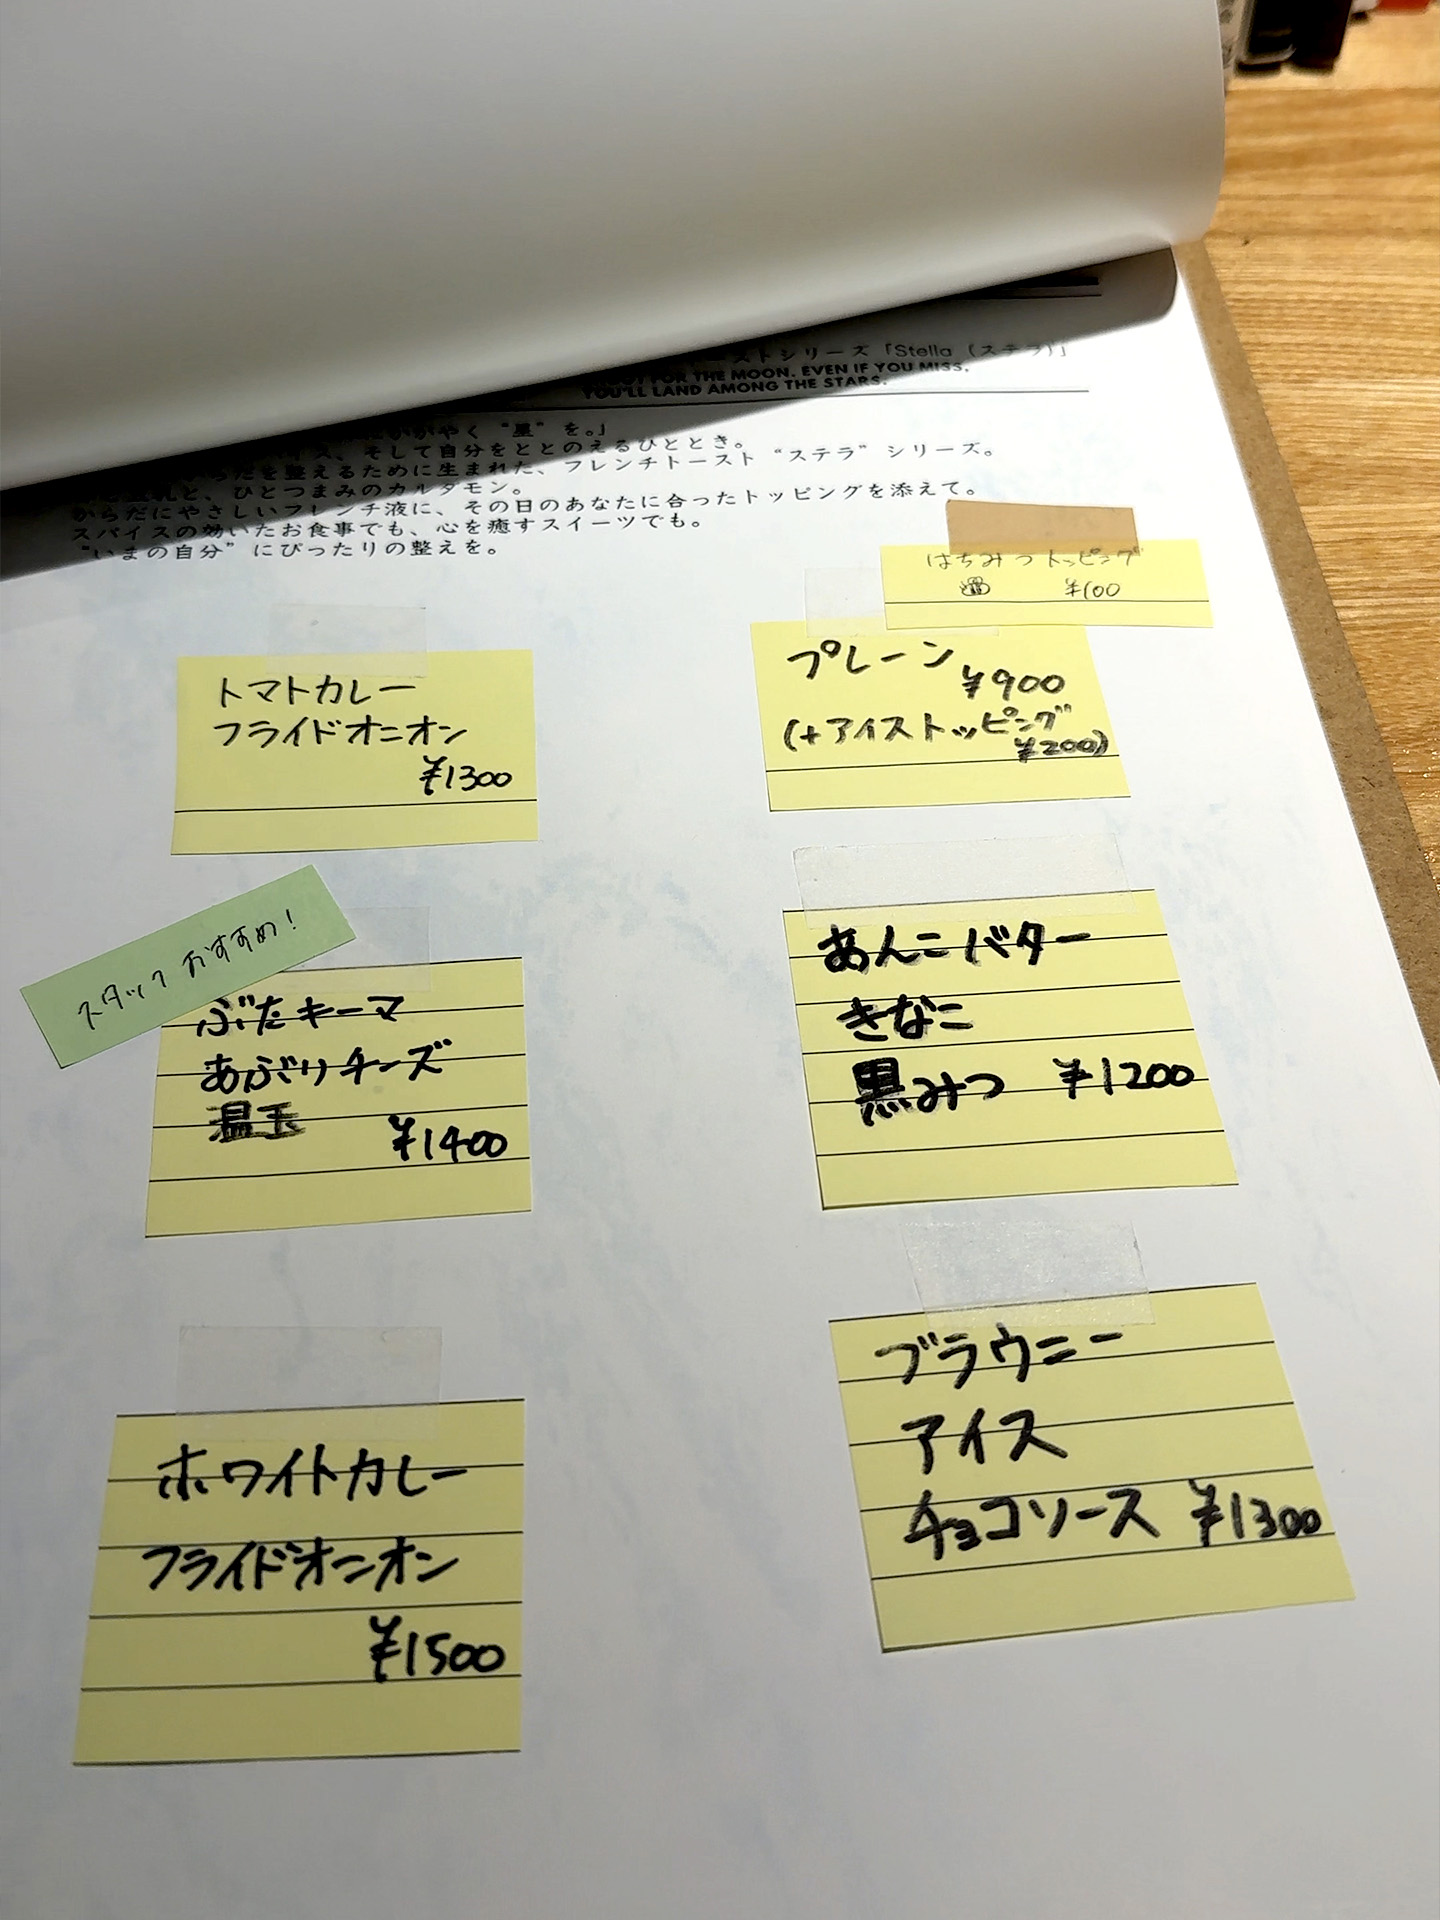 ーストシリーズ「Stella (ステラ)」
FOR THE MOON. EVEN IF YOU MISS,
YOU'LL LAND AMONG THE STARS.
かがやく“星”を。』
イス、そして自分をととのえるひととき。
らだを整えるために生まれた、フレンチトースト“ステラ”シリーズ。
乳と、ひとつまみのカルダモン。
からだにやさしいフレンチ液に、その日のあなたに合ったトッピングを添えて。
スパイスの効いたお食事でも、心を癒すスイーツでも。
“いまの自分”にぴったりの整えを。
はちみつトッピング
¥100
トマトカレー
フライドオニオン
¥1300
プレーン
¥900
(+アイストッピング
¥200)
スタッフおすすめ!
ぶたキーマ
あぶりチーズ
温玉 ¥1400
あんこバター
きなこ
黒みつ ¥1200
ホワイトカレー
フライドオニオン
¥1500
ブラウニー
アイス
チョコソース ¥1300